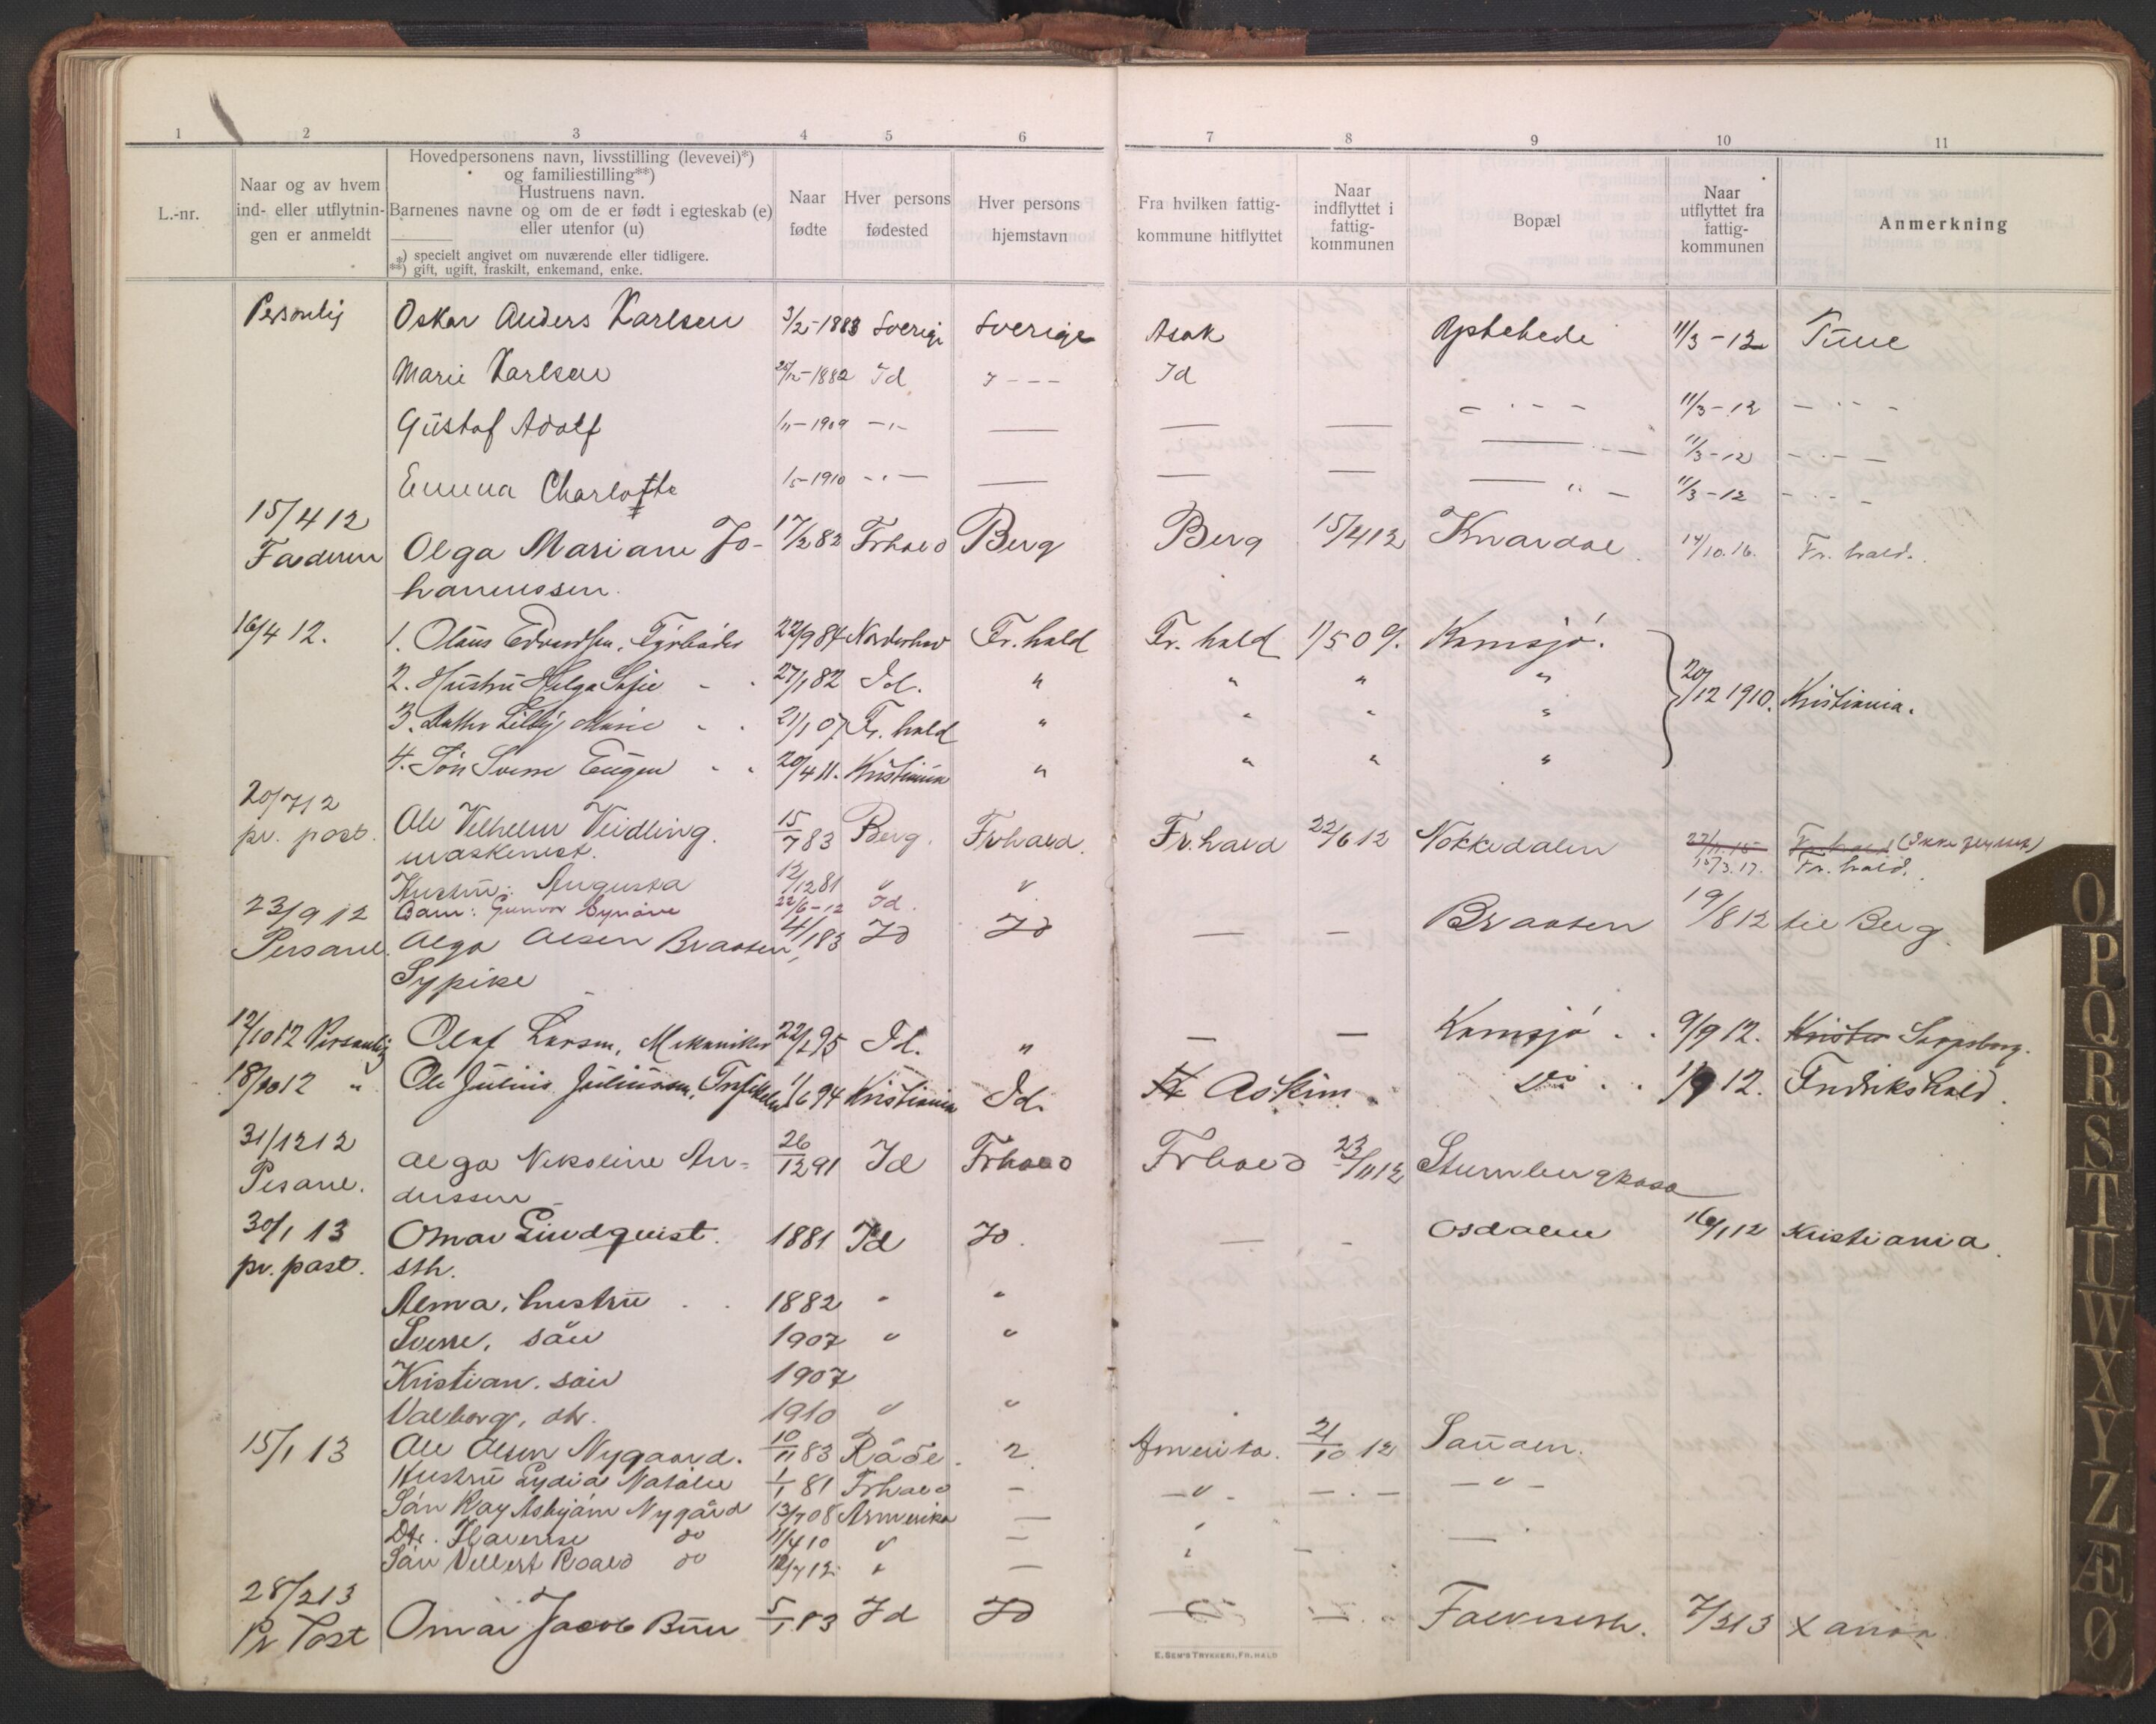 1 2 3 4 5 6 7 8 9 10 11
L.-nr.
Naar og av hvem
ind- eller utflytnin-
gen er anmeldt
Hovedpersonens navn, livsstilling (levevei)*)
og familiestilling**)
Hustruens navn.
Barnenes navne og om de er født i egteskab (e)
eller utenfor (u)
*) specielt angivet om nuværende eller tidligere.
**) gift, ugift, fraskilt, enkemand, enke.
Naar
fødte
Hver persons
fødested
Hver persons
hjemstavn
Fra hvilken fattig-
kommune hitflyttet
Naar
indflyttet i
fattig-
kommunen
Bopæl
Naar
utflyttet fra
fattig-
kommunen
Anmerkning
Personlig Oskar Anders Karlsen 3/2-1883 Sverige Sverige Asak 11/3-12 Tune
Marie Karlsen 1882 Id Id
— 11/3-12 — " —
Gustaf Adolf 1/11-1909 — " — — — —
— " — 11/3-12 — " —
Emma Charlotte 1/5-1910 — " — — — — — " — 11/3-12 — " —
15/4 12
Faderen Olga Mariane Jo- 17/2 82 Frhald Berg Berg 15/4 12 Knardal 14/10.16. Fr. hald.
hannessen.
16/4 12. 1. Olaus Edvardsen, Fyrbøder 22/9 84 Fr. hald Fr. hald 1/5 09. Kamsjø.
2. Hustru Helga Sofie 27/1 82 Id. " " " " 20/12 1910. Kristiania.
3. Datter Lilly Marie 21/1 07 Fr. hald " " " "
4. Søn Sverre Eugen 20/4 11. Kristiania " " " "
20/7 12
pr. post. Ole Vilhelm Veidling. 15/7 83 Berg. Frhald. Fr.hald 22/6 12 Nokkedalen 22/11.15 Fr. hald (Ikke
maskinist. 15/3.17. Fr. hald.
Hustru: Augusta 12/12 81 " "
Barn: Gunvor Synøve 22/6-12 Id.
23/9 12
Personl. Olga Olsen Braaten, 4/1 83 Id Id — — Braaten 19/8 12 til Berg.
Sypike
12/10 12 Personlig Olaf Larsen, Mekaniker 22/1 95 Id. " — — Kamsjø 9/9 12. Kristia Sarpsborg.
18/10 12 " Ole Julius Juliussen, 1/6 94 Kristiania Id. Askim do 1/9 12. Fredrikshald.
31/12 12
Personl. Olga Nikoline An- 26/12 91 Id Frhald Frhald 23/11 12
derssen
30/1 13 Omar Lindquist. 1881 Id Id. — — Osdalen 16/1 12 Kristiania.
pr. post. sth.
Alma, hustru 1882 " "
Sverre, søn 1907 " "
Kristian. søn 1907
Valborg, dtr. 1910 " "
15/1 13 Ole Olsen Nygaard. 10/11 83 Råde. " Amerika. 21/10 12 Sanden.
Hustru Lydia Natalie 1/1 81 Frhald — — " — — . — — " —
Søn Ray Asbjørn Nygård 13/7 08 Amerika — "
Dtr. Florense do 11/4 10 " — —
Søn Villert Roald do 12/7 12 " — " —
28/2 13
Pr Post Omar Jacob Bun 5/1 83 Id Id — — 7/2 13 Xania
E. SEM'S TRYKKERI, FR.HALD
O
P
Q
R
S
T
U
W
X
Y
Z
Æ
Ø